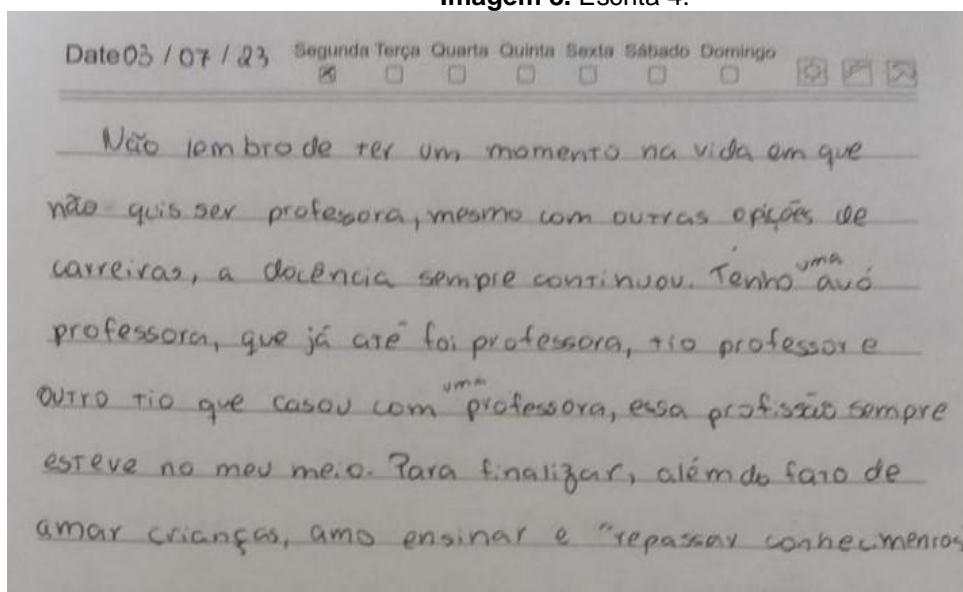 Imagem 3. Escrita 4.
Date 03 / 07 / 23 Segunda Terça Quarta Quinta Sexta Sábado Domingo
Não lembro de ter um momento na vida em que
não quis ser professora, mesmo com outras opições de
carreiras, a docência sempre continuou. Tenho uma avó
professora, que já até foi professora, tio professor e
outro tio que casou com uma professora, essa profissão sempre
esteve no meu meio. Para finalizar, além do fato de
amar crianças, amo ensinar e "repassar conhecimentos